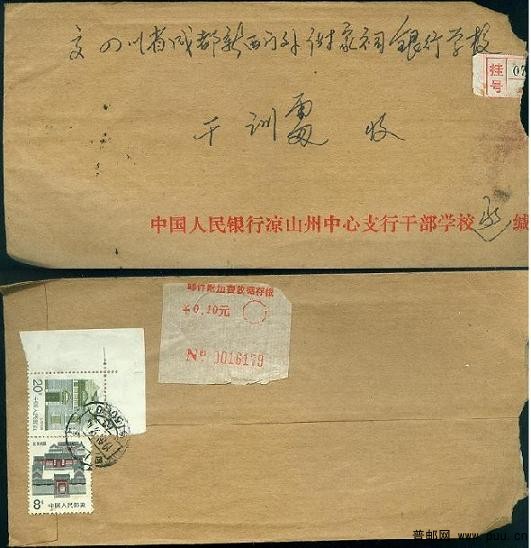 交四川省成都新西门外谢家祠银行学校
挂号
07
干训处 收
中国人民银行凉山州中心支行干部学校 缄
邮件附加费收据存根
￥0.10元
Nº 0016179
20分
中国人民邮政
8分
中国人民邮政
普邮网